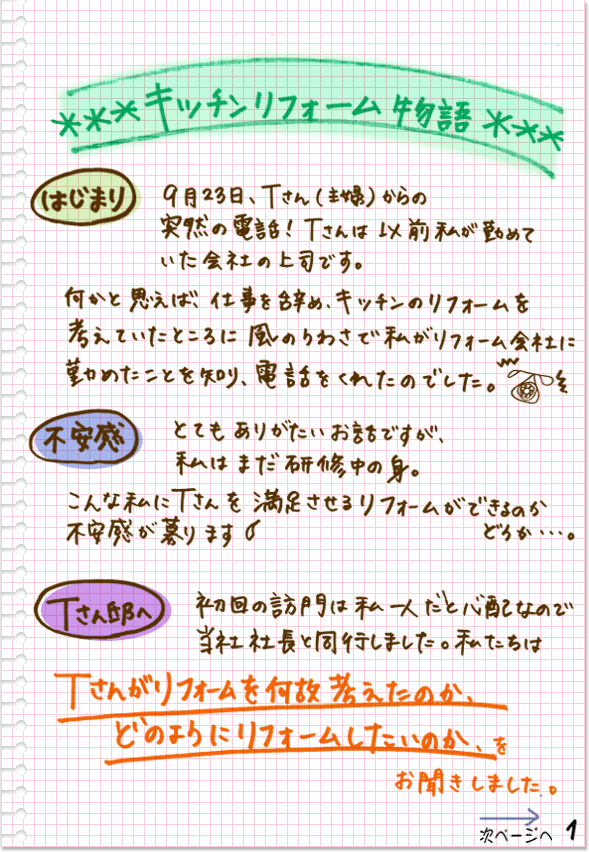 ***キッチンリフォーム物語***
はじまり
9月23日、Tさん(主婦)からの
突然の電話!Tさんは以前私が勤めて
いた会社の上司です。
何かと思えば、仕事を辞め、キッチンのリフォームを
考えていたところに風のうわさで私がリフォーム会社に
勤めたことを知り、電話をくれたのでした。
不安感
とてもありがたいお話ですが、
私はまだ研修中の身。
こんな私にTさんを満足させるリフォームができるのか
不安感が募ります
どうか…。
Tさん邸へ
初回の訪問は私一人だと心配なので
当社社長と同行しました。私たちは
Tさんがリフォームを何故考えたのか、
どのようにリフォームしたいのか、を
お聞きしました。
次ページへ 1